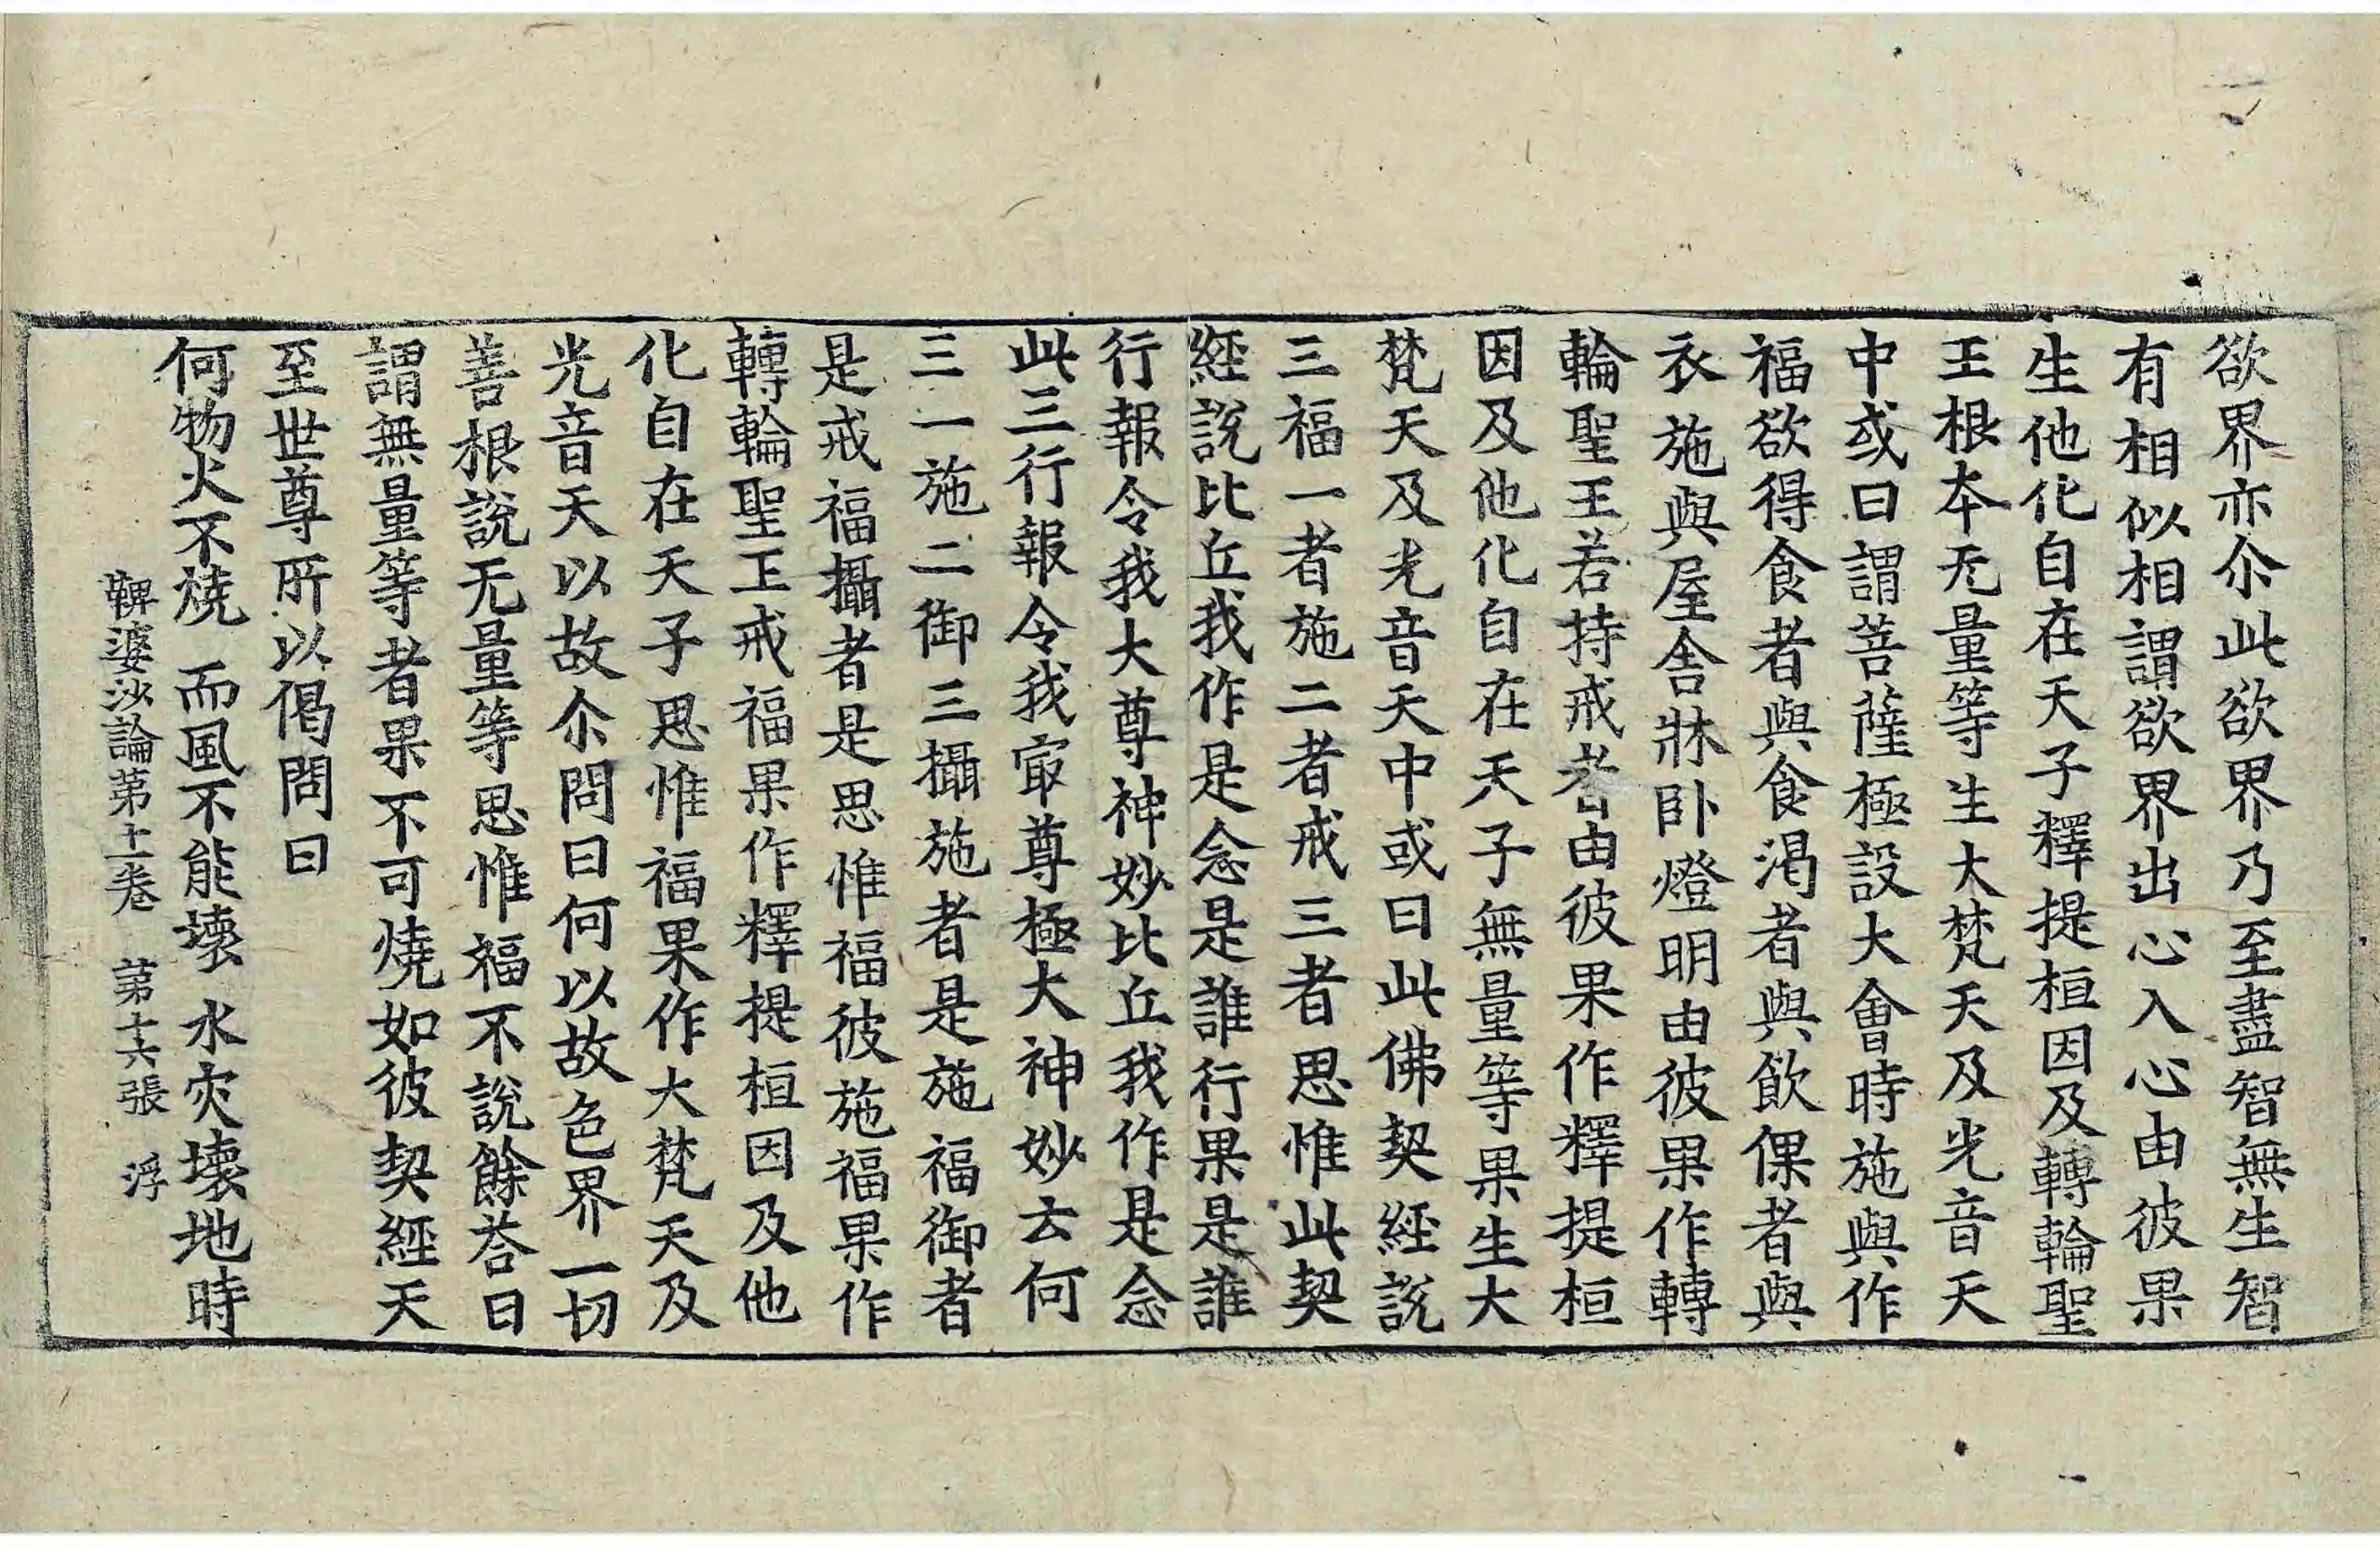 欲界亦尒此欲界乃至盡智無生智
有相似相謂欲界出心入心由彼果
生他化自在天子釋提桓因及轉輪聖
王根本无量等生大梵天及光音天
中或曰謂菩薩極設大會時施與作
福欲得食者與食渴者與飲倮者與
衣施與屋舍牀卧燈明由彼果作轉
輪聖王若持戒者由彼果作釋提桓
因及他化自在天子無量等果生大
梵天及光音天中或曰此佛契經說
三福一者施二者戒三者思惟此契
經說比丘我作是念是誰行果是誰
行報令我大尊神妙比丘我作是念
此三行報令我㝡尊極大神妙云何
三一施二御三攝施者是施福御者
是戒福攝者是思惟福彼施福果作
轉輪聖王戒福果作釋提桓因及他
化自在天子思惟福果作大梵天及
光音天以故尒問曰何以故色界一切
善根說无量等思惟福不說餘荅曰
謂無量等者果不可燒如彼契經天
至世尊所以偈問曰
何物火不燒 而風不能壞 水灾壞地時
鞞婆沙論第十一卷 第十六張 浮